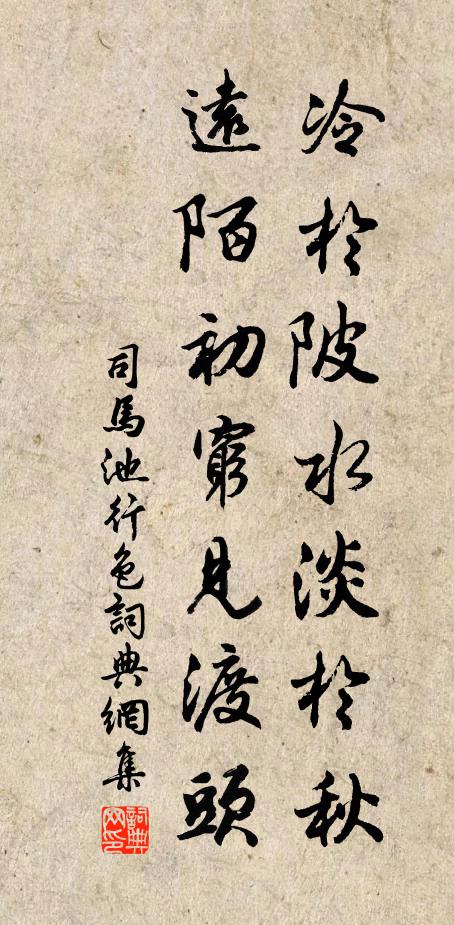 冷於陂水淡於秋
遠陌初窮見渡頭
司馬池行色詞典網集
詞典網印